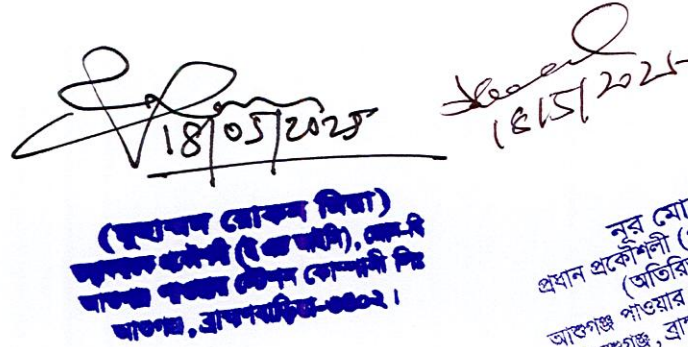 18/05/2025
18/5/2025
(মুহাম্মদ রোকন মিয়া)
প্রকৌশলী
আশুগঞ্জ পাওয়ার স্টেশন কোম্পানী লিঃ
আশুগঞ্জ, ব্রাহ্মণবাড়িয়া-৩৪০২।
নূর মো
প্রধান প্রকৌশলী (
(অতিরি
আশুগঞ্জ পাওয়ার
শুগঞ্জ, ব্রা